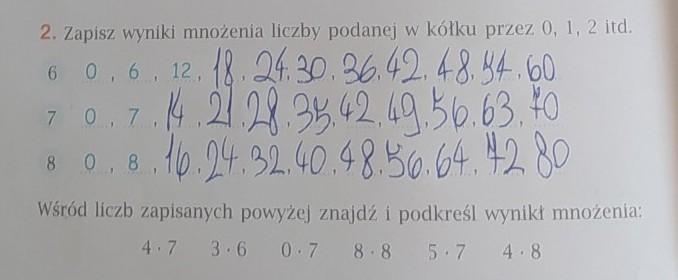 2. Zapisz wyniki mnożenia liczby podanej w kółku przez 0, 1, 2 itd.
6 0 , 6 , 12 , 18 , 24 , 30 , 36 , 42 , 48 , 54 , 60
7 0 , 7 , 14 , 21 , 28 , 35 , 42 , 49 , 56 , 63 , 70
8 0 , 8 , 16 , 24 , 32 , 40 , 48 , 56 , 64 , 72 80
Wśród liczb zapisanych powyżej znajdź i podkreśl wyniki mnożenia:
4 · 7 3 · 6 0 · 7 8 · 8 5 · 7 4 · 8